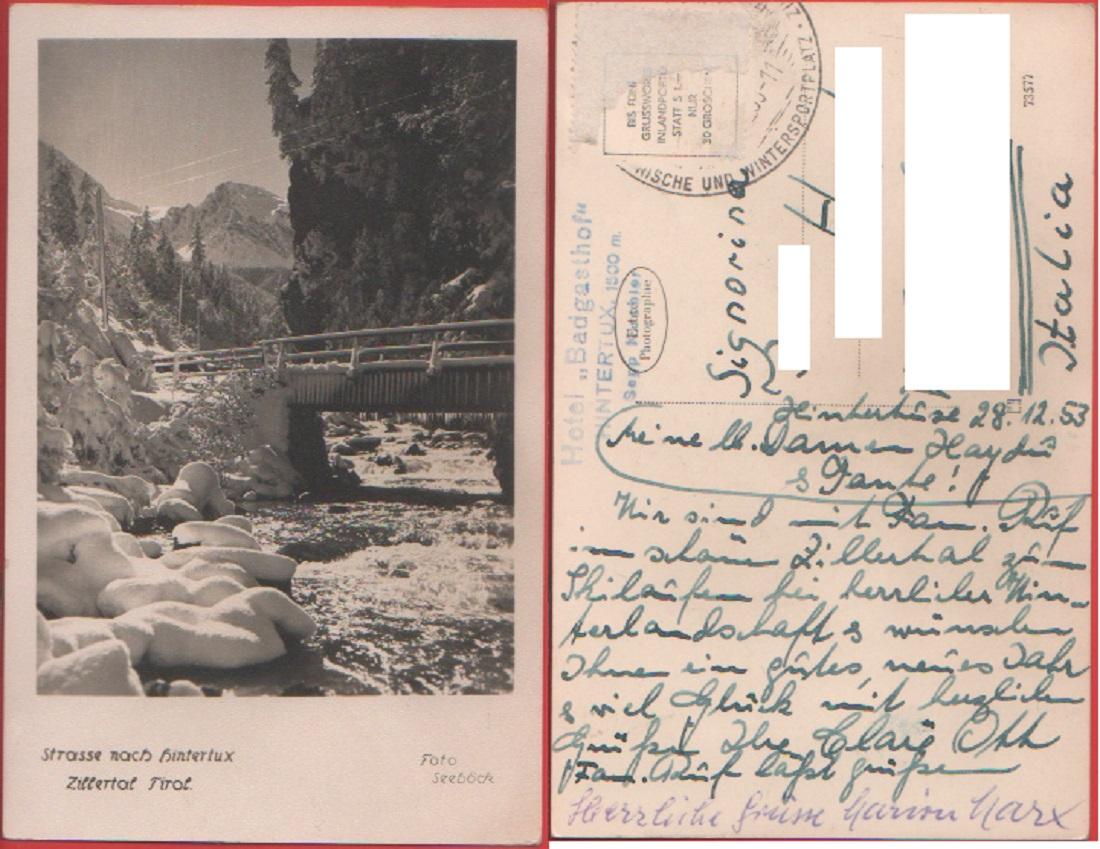 Strasse nach Hintertux
Zillertal Tirol.
Foto
Seeböck
BIS FÜNF
GRUSSWORTE
INLANDPORTO
STATT S 1.—
NUR
30 GROSCHEN
NISCHE UND WINTERSPORTPLATZ
Hotel „Badgasthof"
HINTERTUX, 1500 m.
Sepp
Photographie
73577
Signorina
H
Italia
28.12.53
Meine lb. Damen Haydü
& Tante!
Wir sind mit Fam. Rüf
im schönen Zillertal zum
Skilaufen bei herrlicher Win-
terlandschaft & wünschen
Ihnen ein gutes, neues Jahr
& viel Glück mit herzlichen
Grüßen Ihre Otth
Fam. Rüf läßt grüßen
Herrzliche Grüsse Marion Marx